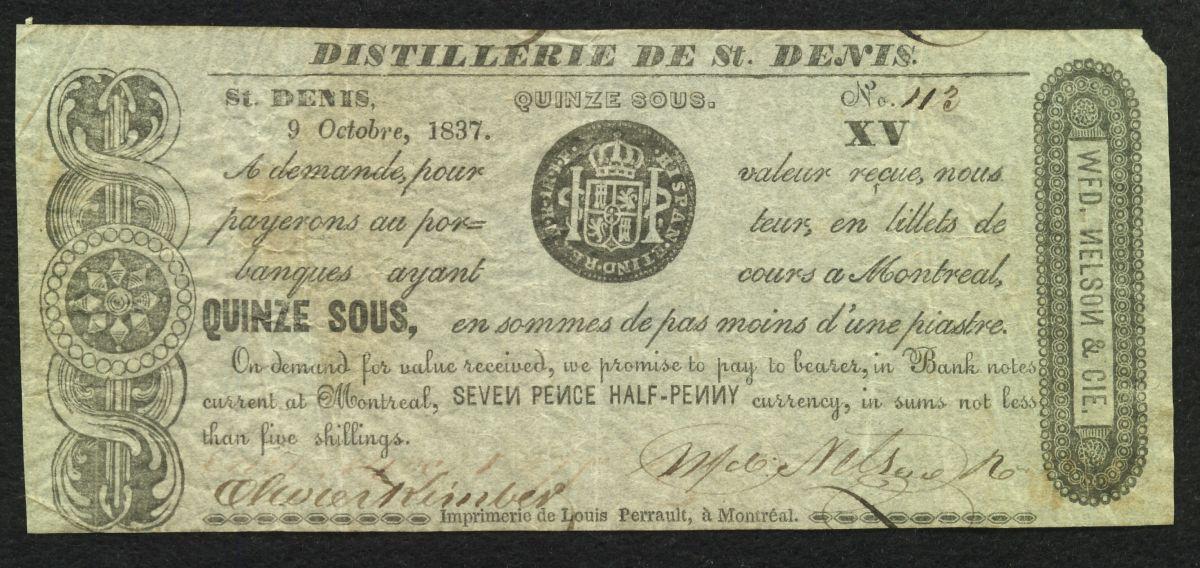 DISTILLERIE DE St. DENIS.
St. DENIS, QUINZE SOUS. No. 113
9 Octobre, 1837. XV
A demande, pour valeur reçue, nous
payerons au por= teur, en billets de
banques ayant cours a Montreal,
QUINZE SOUS, en sommes de pas moins d'une piastre.
On demand for value received, we promise to pay to bearer, in Bank notes
current at Montreal, SEVEN PENCE HALF-PENNY currency, in sums not less
than five shillings.
Olivier Kimber Wd. Nelson
Imprimerie de Louis Perrault, à Montréal.
WFD. NELSON & CIE.
HISPAN.ET IND.R